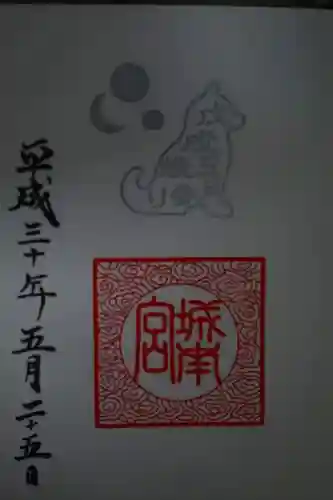 平成三十年五月二十五日
城南宮